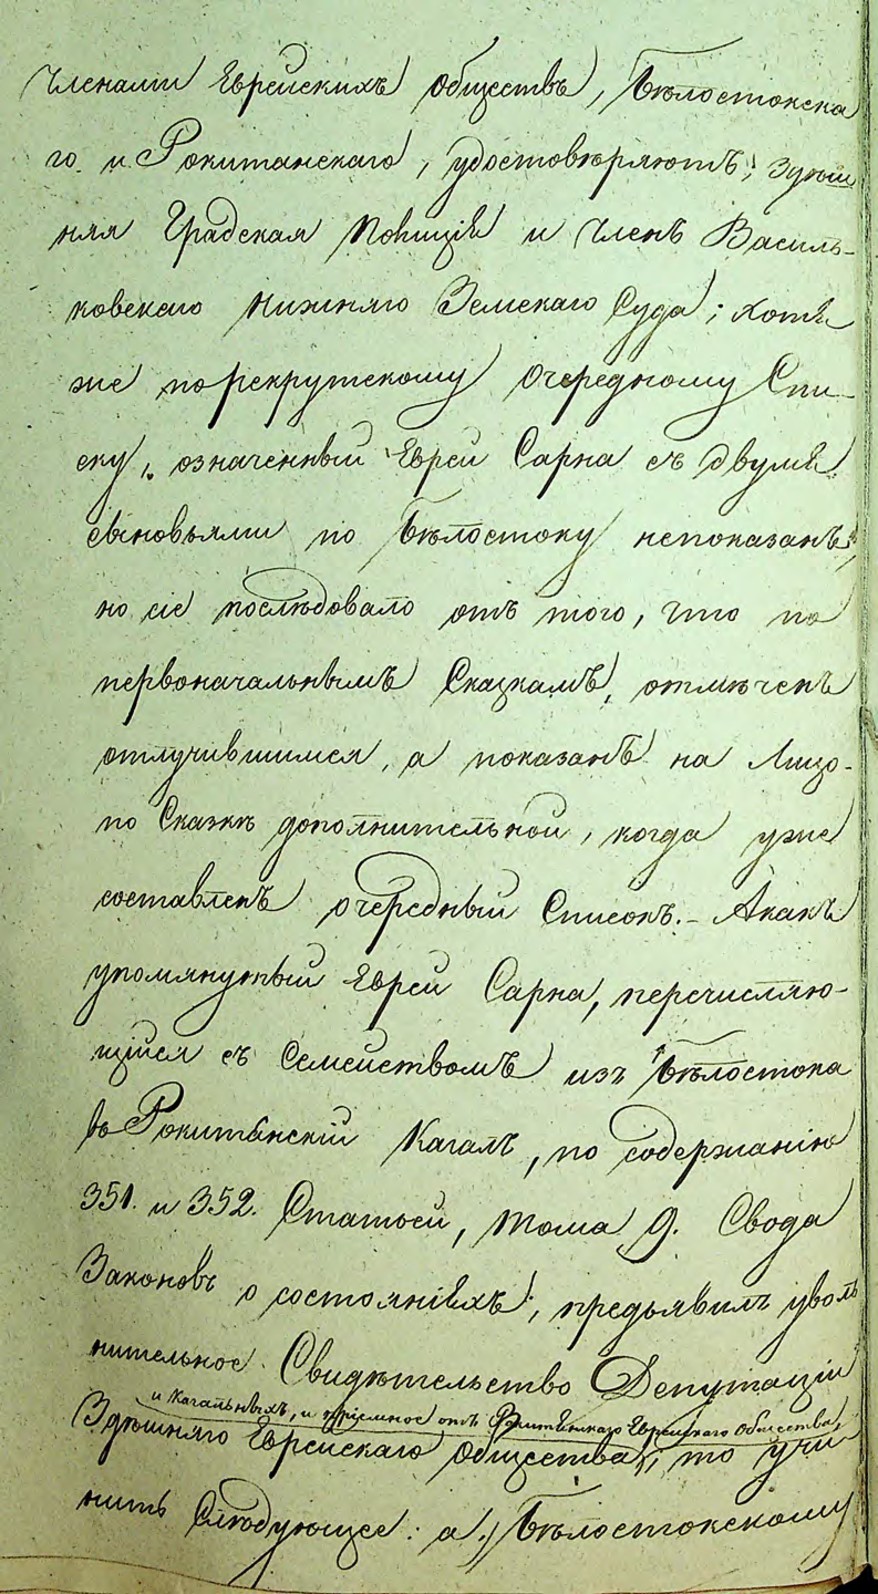 Членами Еврейскихъ Обществъ, Бѣлостокска
го и Рокитанскаго, удостовѣряютъ; Здѣш
няя Градская Полиція и Членъ Василь-
ковскаго Нижняго Земскаго Суда; хотя
же по рекрутскому очередному Спи-
ску, означенный Еврей Сарна съ двумя
сыновьями по Бѣлостоку непоказанъ,
но сіе послѣдовало отъ того, что по
первоначальнымъ Сказкамъ, отмѣченъ
отлучившимся, а показанъ на Лицо-
по Сказкѣ дополнительной, когда уже
составленъ очередный Списокъ. - Акакъ
упомянутый Еврей Сарна, перечисляю-
щійся съ Семействомъ изъ Бѣлостока
въ Рокитанскій Кагалъ, по содержанію
351. и 352. Статьей, тома 9. Свода
Законовъ о состояніяхъ, предъявилъ уволь
нительное Свидѣтельство Депутаціи
и Кагальныхъ, и пріемное отъ Рокитянскаго Еврейскаго Общества,
Здѣшняго Еврейскаго Общества, то учи
нить Слѣдующее: а.) Бѣлостокскому